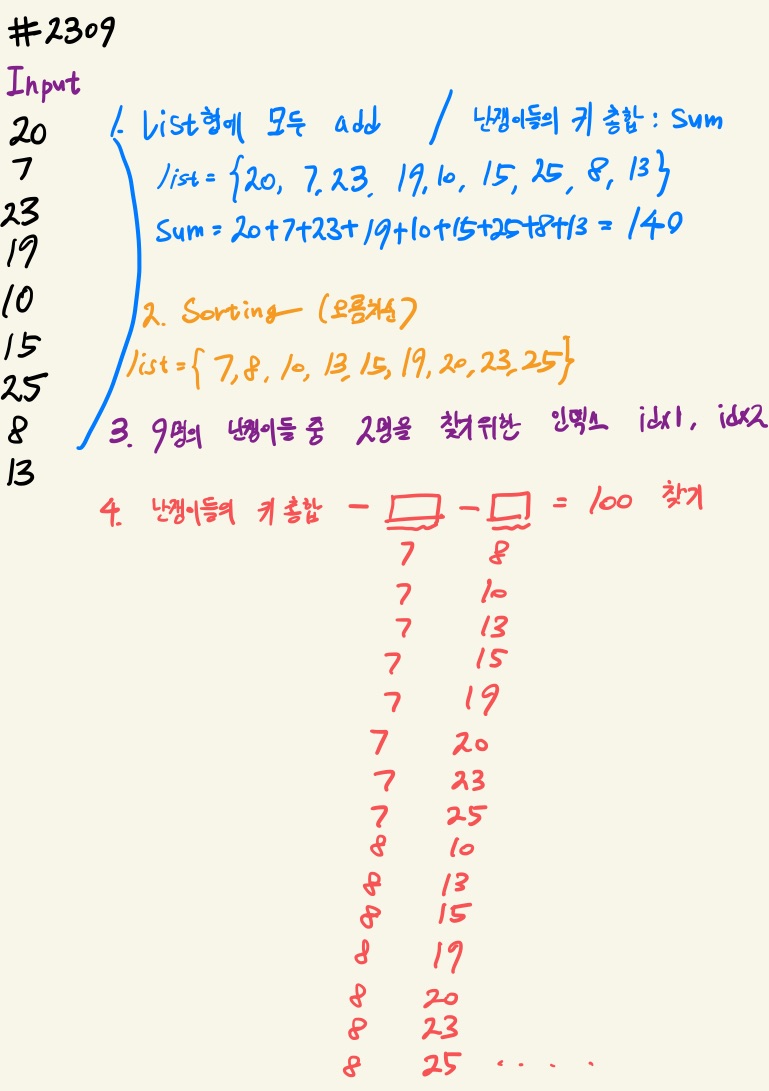 #2309
Input
20
7
23
19
10
15
25
8
13
1. List형에 모두 add / 난쟁이들의 키 총합 : Sum
list = {20, 7, 23, 19, 10, 15, 25, 8, 13}
Sum = 20+7+23+19+10+15+25+8+13 = 140
2. Sorting (오름차순)
list = { 7, 8, 10, 13, 15, 19, 20, 23, 25}
3. 9명의 난쟁이들 중 2명을 찾기 위한 인덱스 idx1, idx2
4. 난쟁이들의 키 총합 - □ - □ = 100 찾기
7 8
7 10
7 13
7 15
7 19
7 20
7 23
7 25
8 10
8 13
8 15
8 19
8 20
8 23
8 25 . . . .